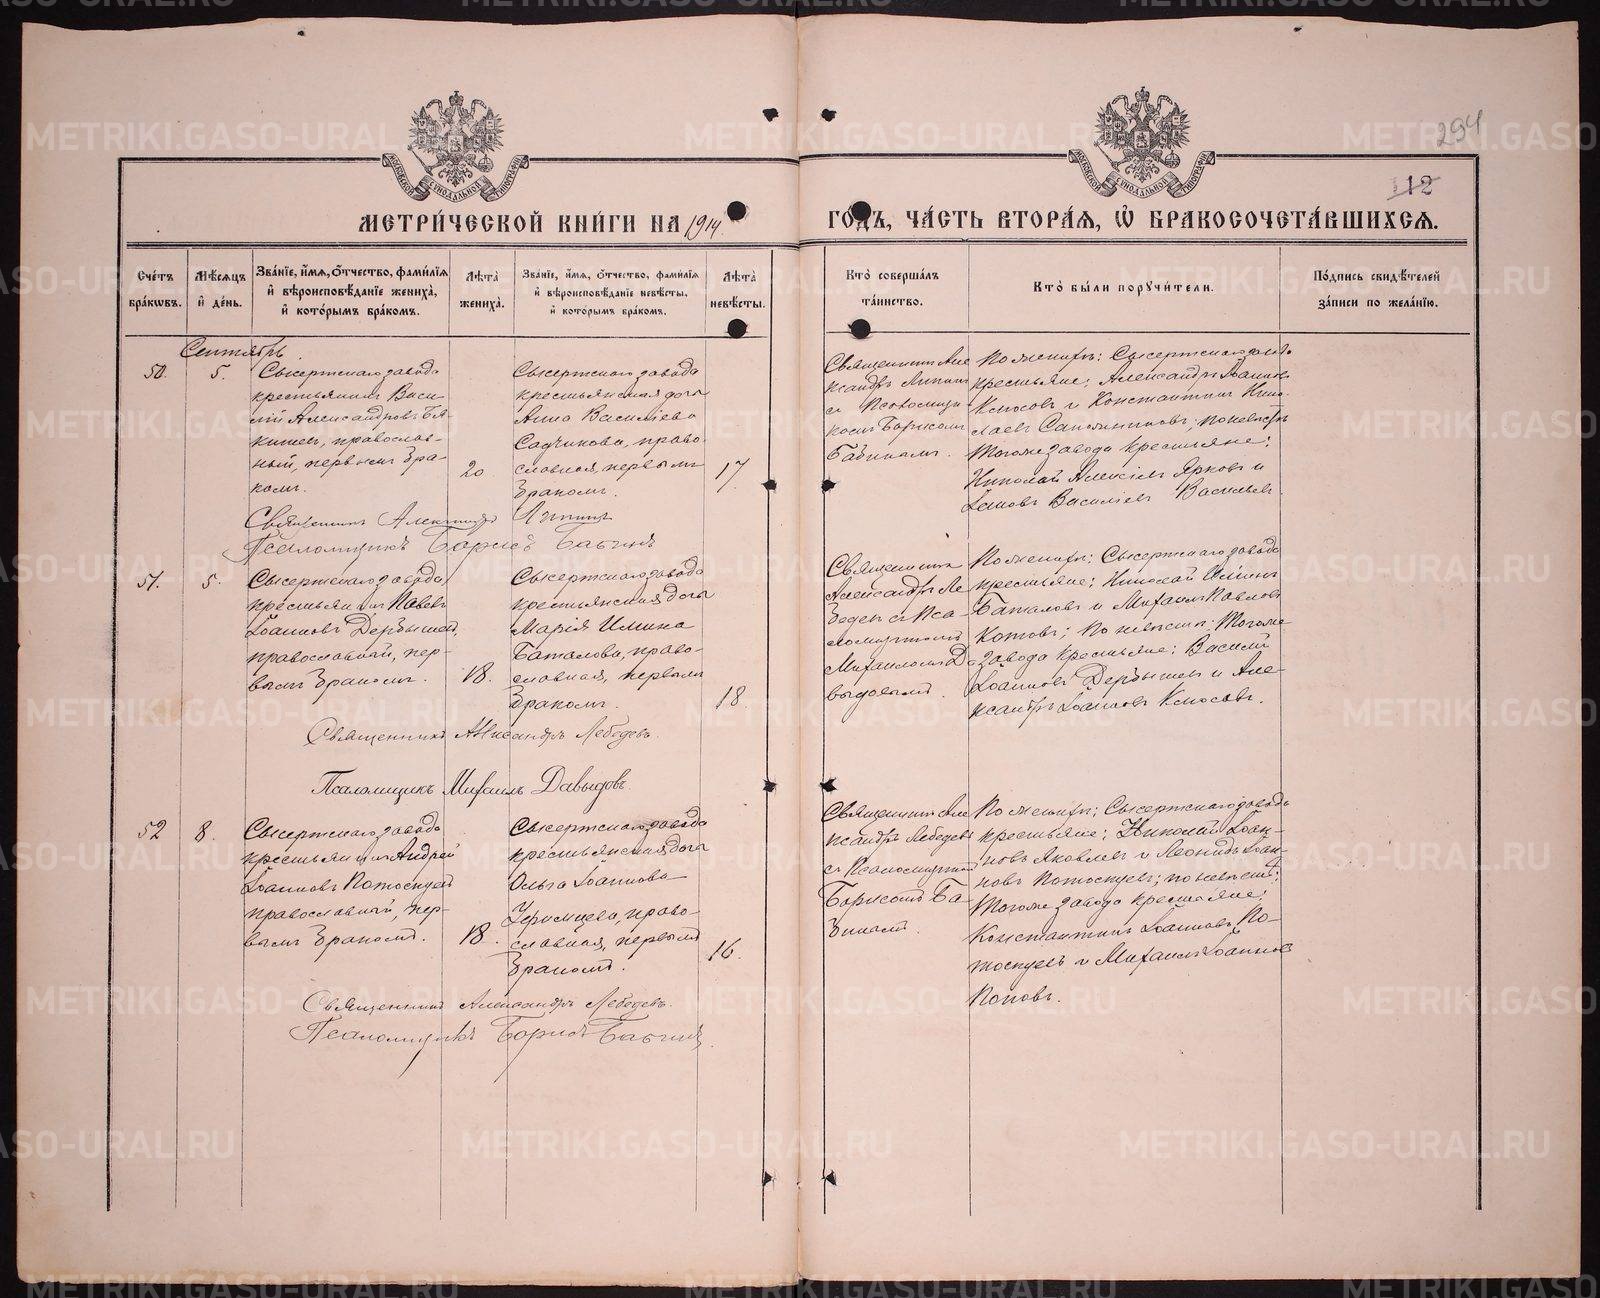 294
112
МОСКОВСКОЙ СѴНОДАЛЬНОЙ ТИПОГРАФІИ
МОСКОВСКОЙ СѴНОДАЛЬНОЙ ТИПОГРАФІИ
МЕТРИ́ЧЕСКОЙ КНИ́ГИ НА 1914
ГОДЪ, ЧА́СТЬ ВТОРА́Я, Ѽ БРАКОСОЧЕТА́ВШИХСЯ.
Сче́тъ
бра́ковъ.
Мѣ́сяцъ
и҆ де́нь.
Зва́нїе, и҆́мя, ѻ҆́тчество, фами́лїя
и҆ вѣроисповѣ́данїе жениха̀,
и҆ кото́рымъ бра́комъ.
Лѣ́та
жениха̀.
Зва́нїе, и҆́мя, ѻ҆́тчество, фами́лїя
и҆ вѣроисповѣ́данїе невѣ́сты,
и҆ кото́рымъ бра́комъ.
Лѣ́та
невѣ́сты.
Кто̀ соверша́лъ
та́инство.
Кто̀ бы́ли пору́чители.
По́дпись свидѣ́телей
за́писи по жела́нїю.
Сентябрь.
50.
5.
Сысертскаго завода
крестьянинъ Васи-
лій Александровъ
православ-
ный, первымъ бра-
комъ.
20
Сысертскаго завода
крестьянская дочь
Анна Васильева
Садчикова, право-
славная, первымъ
бракомъ.
17
Священникъ Але
ксандръ
съ Псаломщи-
комъ Борисомъ
Бабинымъ.
По женихѣ: Сысертскаго завода
крестьяне: Александръ Іоаннов
и Константинъ Нико
лаевъ по невѣстѣ
тогоже завода крестьяне:
Николай Алексѣевъ Ярковъ и
Іаковъ Васильевъ Васильевъ.
Священникъ Александръ
Псаломщикъ Борисъ Бабинъ
51.
5.
Сысертскаго завода
крестьянинъ Павелъ
Іоанновъ Дербышевъ,
православный, пер-
вымъ бракомъ.
18.
Сысертскаго завода
крестьянская дочь
Марія Ильина
Баталова, право-
славная, первымъ
бракомъ.
18.
Священникъ
Александръ Ле
бедевъ съ Пса-
ломщикомъ
Михаиломъ Да
выдовымъ.
По женихѣ: Сысертскаго завода
крестьяне: Николай Ильинъ
Баталовъ и Михаилъ Павловъ
Котовъ; по невѣстѣ: тогоже
завода крестьяне: Василій
Іоанновъ Дербышевъ и Але-
ксандръ Іоанновъ
Священникъ Александръ Лебедевъ.
Псаломщикъ Михаилъ Давыдовъ.
52
8.
Сысертскаго завода
крестьянинъ Андрей
Іоанновъ Потоскуевъ
православный, пер-
вымъ бракомъ.
18.
Сысертскаго завода
крестьянская дочь
Ольга Іоаннова
право-
славная, первымъ
бракомъ.
16.
Священникъ Але
ксандръ Лебедевъ
съ Псаломщикомъ
Борисомъ Ба-
бинымъ.
По женихѣ: Сысертскаго завода
крестьяне: Николай Іоан-
новъ Яковлевъ и Леонидъ Іоан-
новъ Потоскуевъ; по невѣстѣ:
тогоже завода крестьяне:
Константинъ Іоанновъ По-
тоскуевъ и Михаилъ Іоанновъ
Поповъ.
Священникъ Александръ Лебедевъ.
Псаломщикъ Борисъ Бабинъ.
METRIKI.GASO-URAL.RU